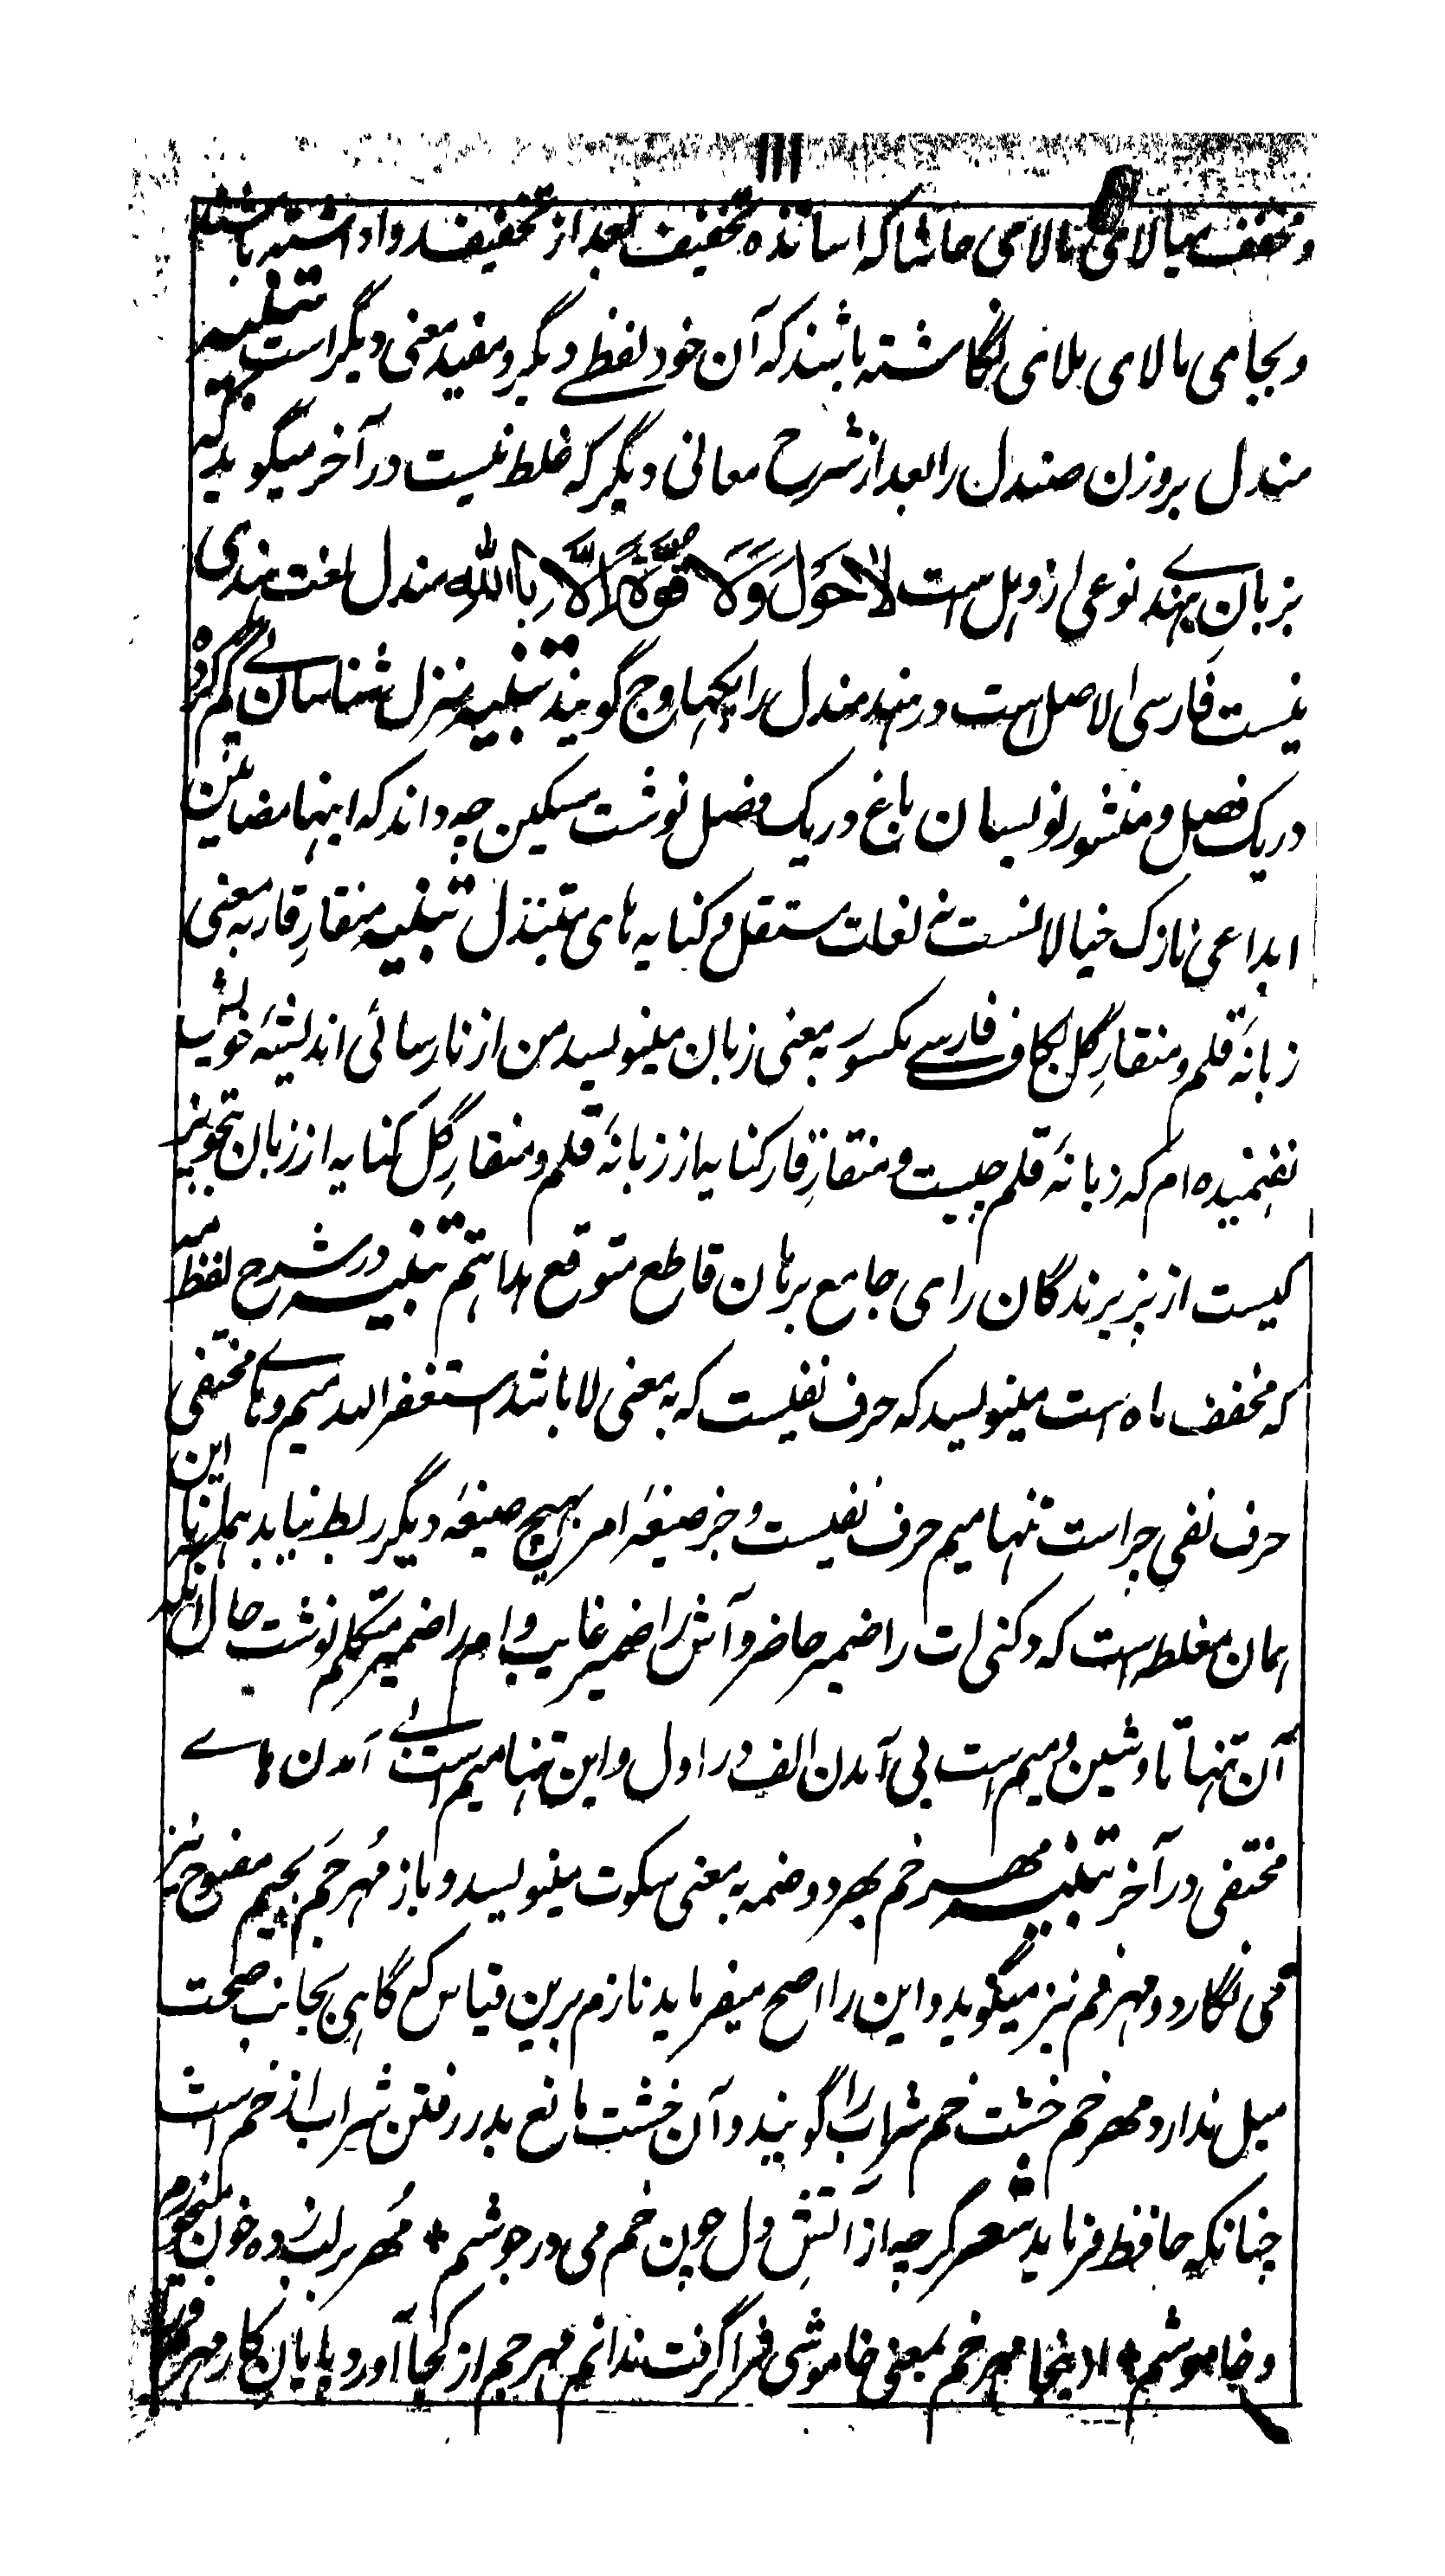 ااا
و مخفف میالامی مالامی حاشا که اساتذه تخفیف بعد از تخفیف روا داشته باشند
و بجامی مالای ملای نگاشته باشند که آن خود لفظے دیگر و مفید معنی دیگر است تنبیه
مندل بروزن صندل را بعد از شرح معانی دیگر که غلط نیست در آخر میگوید که
بزبانِ ہند نوعی از دہل است لَا حَوْلَ وَلَا قُوَّةَ اِلَّا بِاللهِ مندل لغت ہندی
نیست فارسی الاصل است در ہند مندل را پکہاوج گویند تنبیه منزل شناسان پے گم کرده
در یک فصل و منشور نویسان باغ در یک فصل نوشت مسکین چه داند که اینها مضامین
ابداعی نازک خیالانست نے لغات مستقل و کنایه ہای مبتذل تنبیه منقارِ قار به معنی
زبانهٔ قلم و منقارِ گِل بکاف فارسے مکسور به معنی زبان مینویسد من از نارسائی اندیشهٔ خویش
نفہمیده ام که زبانهٔ قلم چیست و منقارِ قار کنایه از زبانهٔ قلم و منقارِ گل کنایه از زبان تجویز
کیست از پزیرندگان رای جامع برہان قاطع متوقع ہدایتم تنبیه در شرح لفظ مه
که مخفف ماه است مینویسد که حرف نفیست که به معنی لا باشد استغفر الله میم و ہاے مختفی
حرف نفی چراست تنہا میم حرف نفیست و جز صیغهٔ امر بہیچ صیغهٔ دیگر ربط نیابد ہمانا این
ہمان مغلطه است که دکنی ات را ضمیر حاضر و آش را ضمیر غایب و ام را ضمیر متکلم نوشت حال آنکه
آن تنہا تا و شین و میم است بی آمدن الف در اول و این تنہا میم است بے آمدن ہاے
مختفی در آخر تنبیه مهر خم بهر دو ضمه به معنی سکوت مینویسد و باز مُہر جَم بجیم مفتوح نیز
می نگارد و مہر فم نیز میگوید و این را اصح میفرماید نازم برین قیاس که گاہی بجانب صحت
میل ندارد مهر خم خشت خم شراب را گویند و آن خشت مانع بدر رفتن شراب از خم است
چنانکه حافظ فرماید شعر گرچه از آتشِ دل چون خم می در جوشم * مُهر بر لب زده خون میخورم
و خاموشم * ازینجا مہر خم بمعنی خاموشی فرا گرفت ندانم مہر جم از کجا آورد پایان کار مہر فم